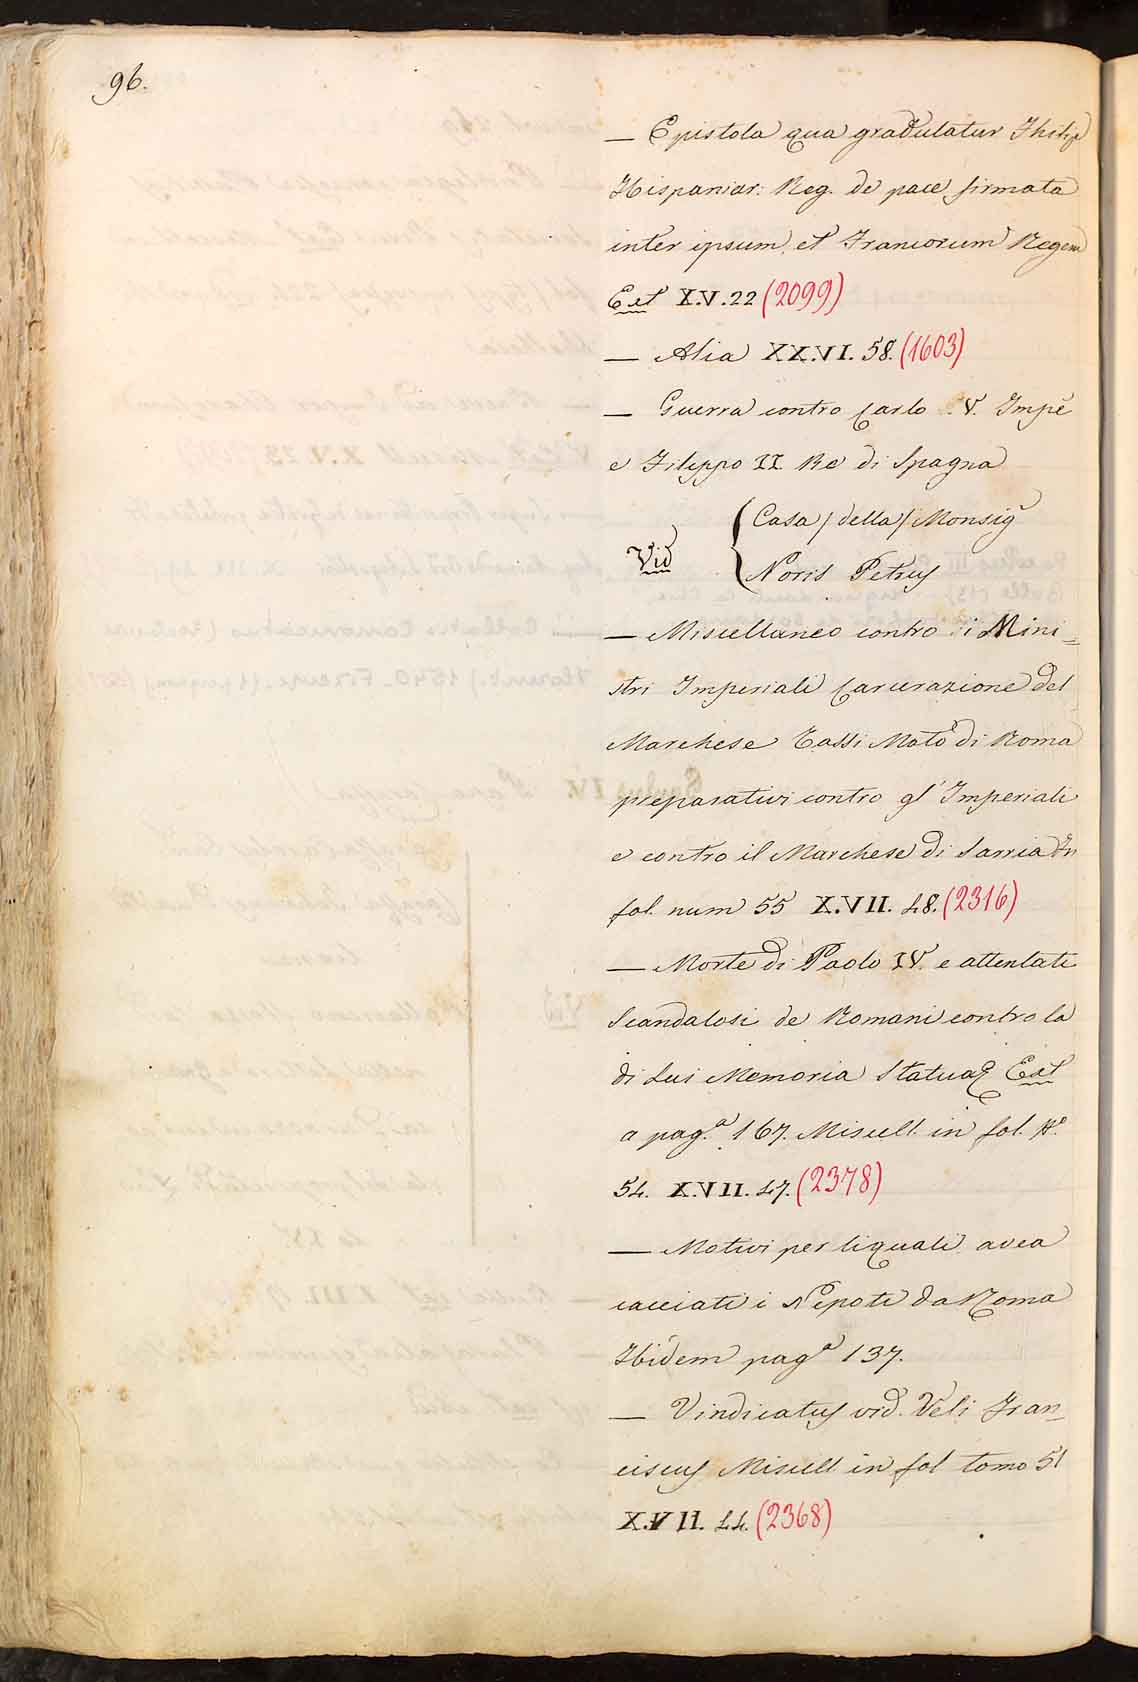 96.
— Epistola qua gradulatur Philip
Hispaniar: Reg. de pace firmata
inter ipsum et Francorum Regem
Ext X.V.22 (2099)
— Alia XX.VI. 58. (1603)
— Guerra contro Carlo .V. Impe
e Filippo II Re di Spagna
Vid { Casa / della / Monsig
Noris Petrus
— Miscellaneo contro i Mini=
stri Imperiali Carcerazione del
Marchese Tassi Mato di Roma
preparativi contro gl' Imperiali
e contro il Marchese di Sarria In
fol. num 55 X.VII. 48. (2316)
— Morte di Paolo IV. e attentati
Scandalosi de Romani contro la
di Lui Memoria Statuaq Ext
a pag.a 167. Miscell. in fol. No.
54. X.VII. 47. (2378)
— Motivi per li quali avea
cacciati i Nepoti da Roma
Ibidem pag.a 137.
— Vindicatus vid. Veli Fran_
ciscus Miscell in fol tomo 51
X.VII. 44. (2368)